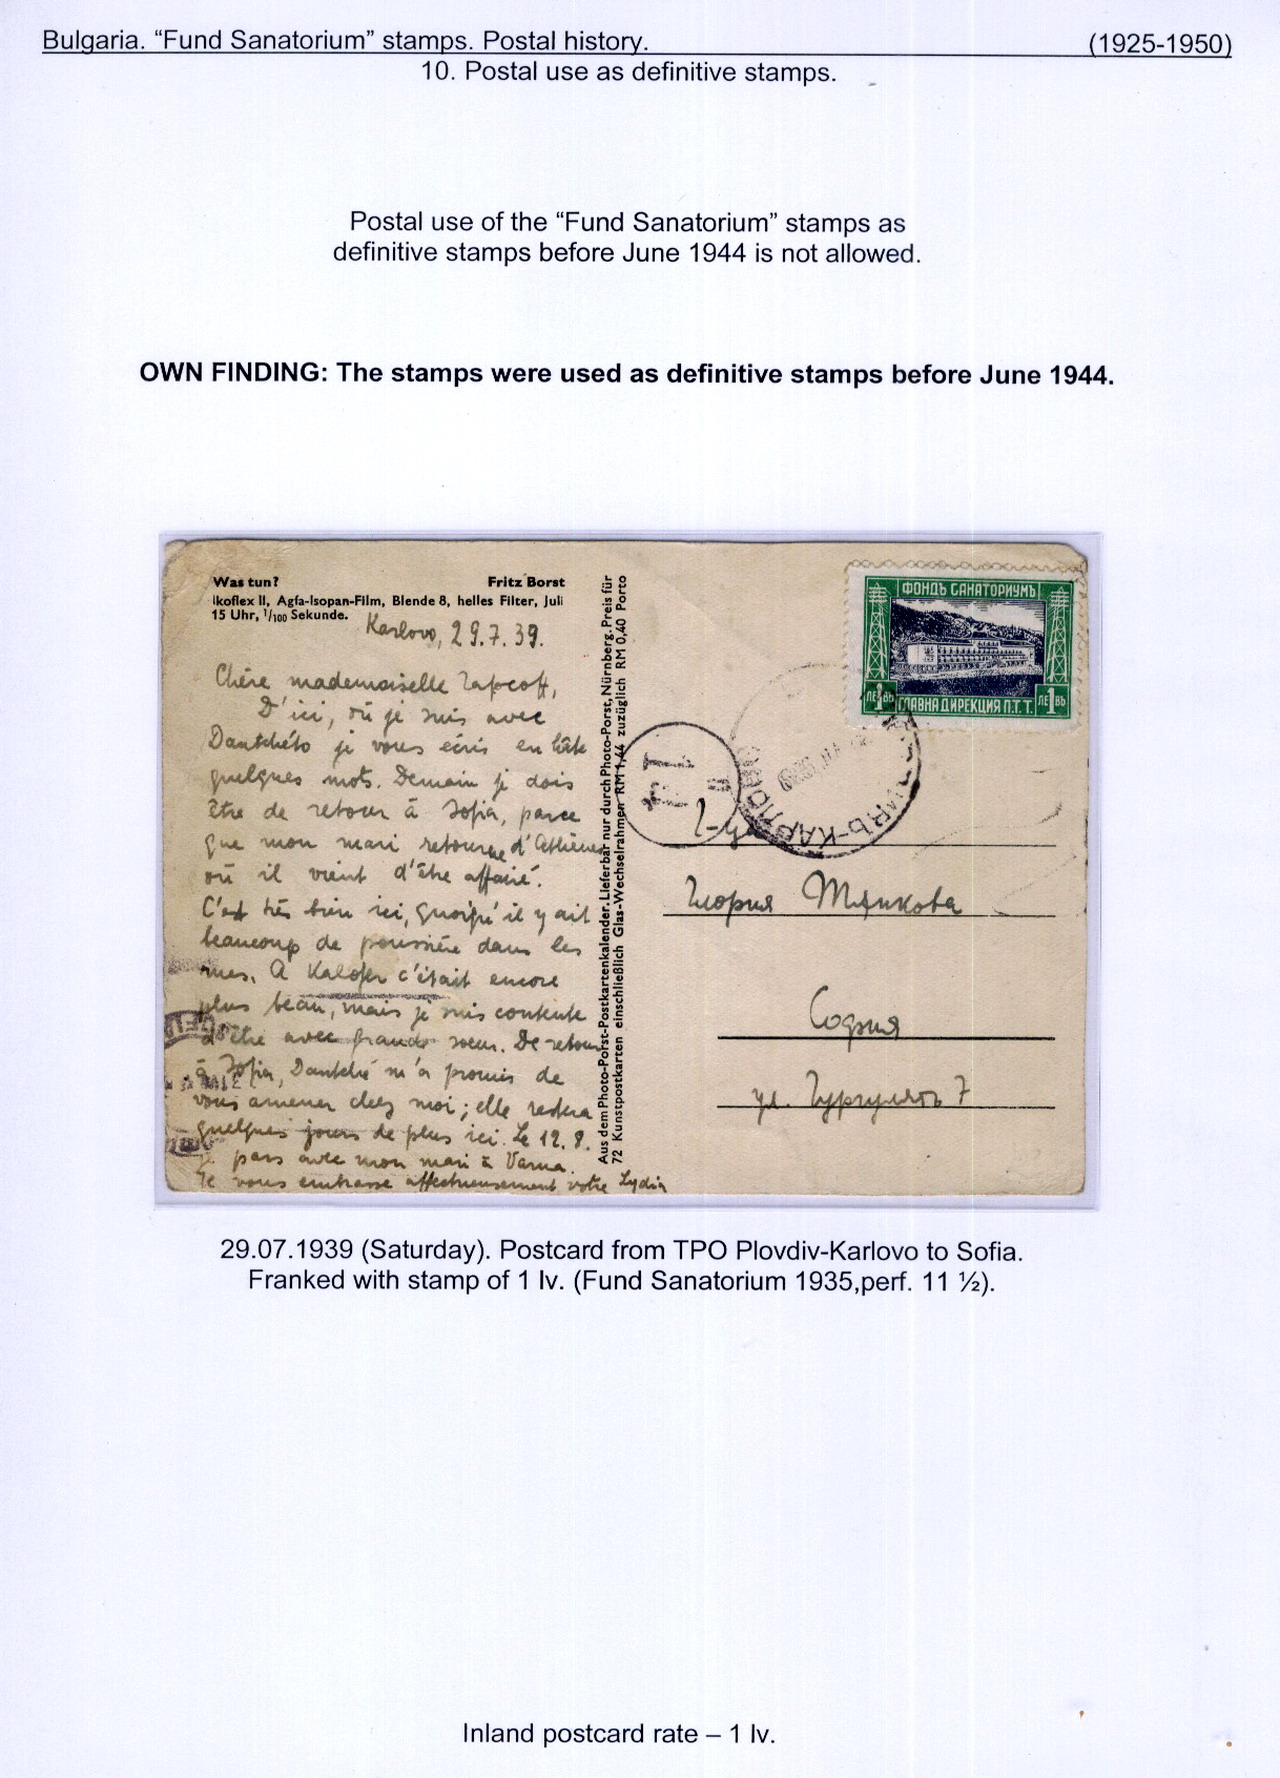 Bulgaria. “Fund Sanatorium” stamps. Postal history. (1925-1950)
10. Postal use as definitive stamps.
Postal use of the “Fund Sanatorium” stamps as
definitive stamps before June 1944 is not allowed.
OWN FINDING: The stamps were used as definitive stamps before June 1944.
Was tun? Fritz Borst
Ikoflex II, Agfa-Isopan-Film, Blende 8, helles Filter, Juli
15 Uhr, 1/100 Sekunde.
Karlovo, 29.7.39.
Chère mademoiselle
D'ici, où je suis avec
je vous écris en hâte
quelques mots. Demain je dois
être de retour à Sofia, parce
que mon mari retourne d'Athènes
où il vient d'être affairé.
C'est très bien ici, quoiqu'il y ait
beaucoup de poussière dans les
rues. A Kalofer c'était encore
plus beau, mais je suis contente
d'être avec grande soeur. De retour
à Sofia, m'a promis de
vous amener chez moi; elle restera
quelques jours de plus ici. Le 12.8.
je pars avec mon mari à Varna.
Je vous embrasse affectueusement votre Lydia
Aus dem Photo-Porst-Postkartenkalender. Lieferbar nur durch Photo-Porst, Nürnberg. Preis für
72 Kunstpostkarten einschließlich Glas-Wechselrahmen RM 1,44 zuzüglich RM 0,40 Porto
ФОНДЪ САНАТОРИУМЪ
ЛЕ 1 ВЪ ГЛАВНА ДИРЕКЦИЯ П.Т.Т. ЛЕ 1 ВЪ
София
ул. Гургулятъ 7
29.07.1939 (Saturday). Postcard from TPO Plovdiv-Karlovo to Sofia.
Franked with stamp of 1 lv. (Fund Sanatorium 1935,perf. 11 ½).
Inland postcard rate – 1 lv.